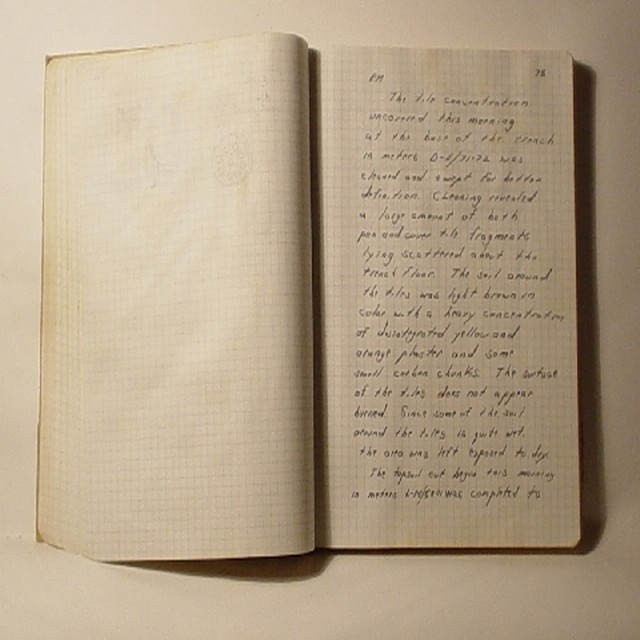 PM 78
The tile concentration
uncovered this morning
at the base of the trench
in meters was
cleaned and swept for better
definition. Cleaning revealed
a large amount of both
pan and cover tile fragments
lying scattered about the
trench floor. The soil around
the tiles was light brown in
color with a heavy concentration
of disintegrated yellow and
orange plaster and some
small carbon chunks. The surface
of the tiles does not appear
burned. Since some of the soil
around the tiles is quite wet,
the area was left exposed to dry.
The topsoil cut begun this morning
in meters was completed to